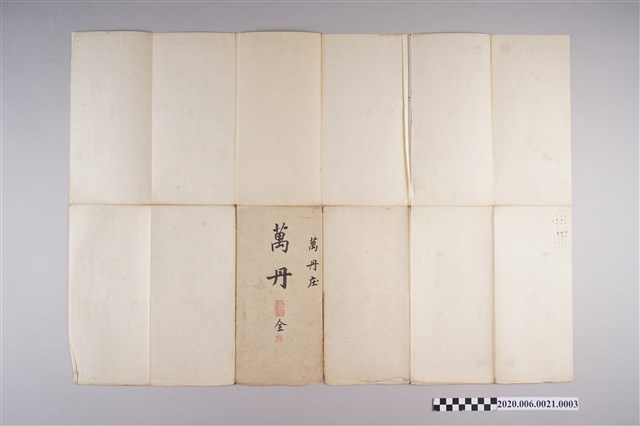 萬丹庄
萬丹
全
2020.006.0021.0003